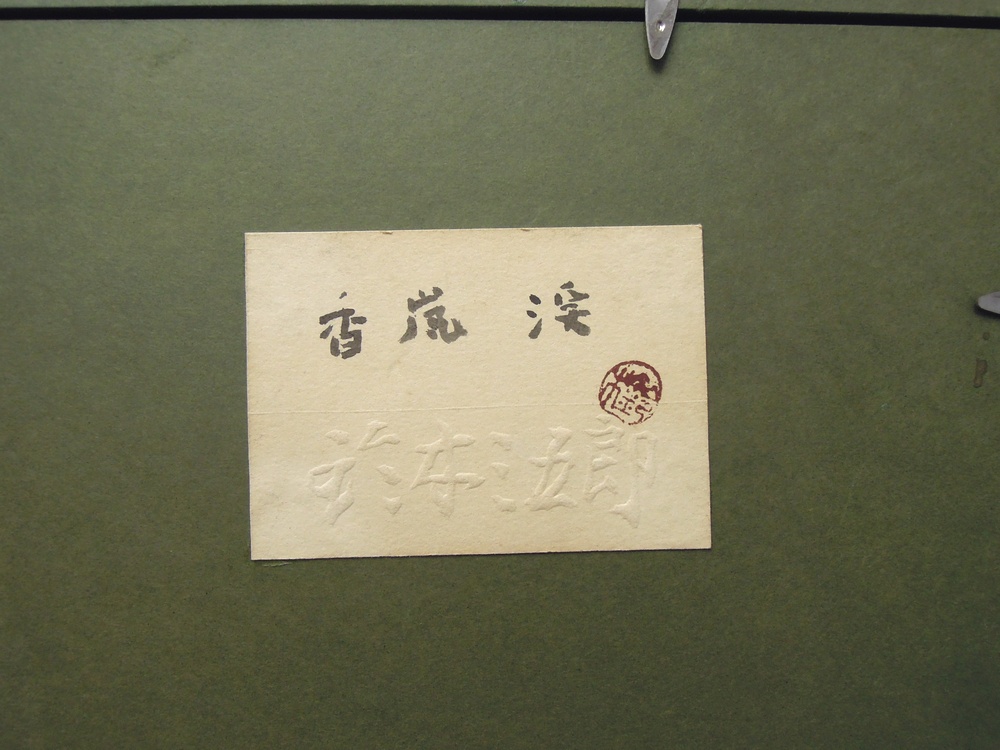 香嵐渓
鈴木三五郎